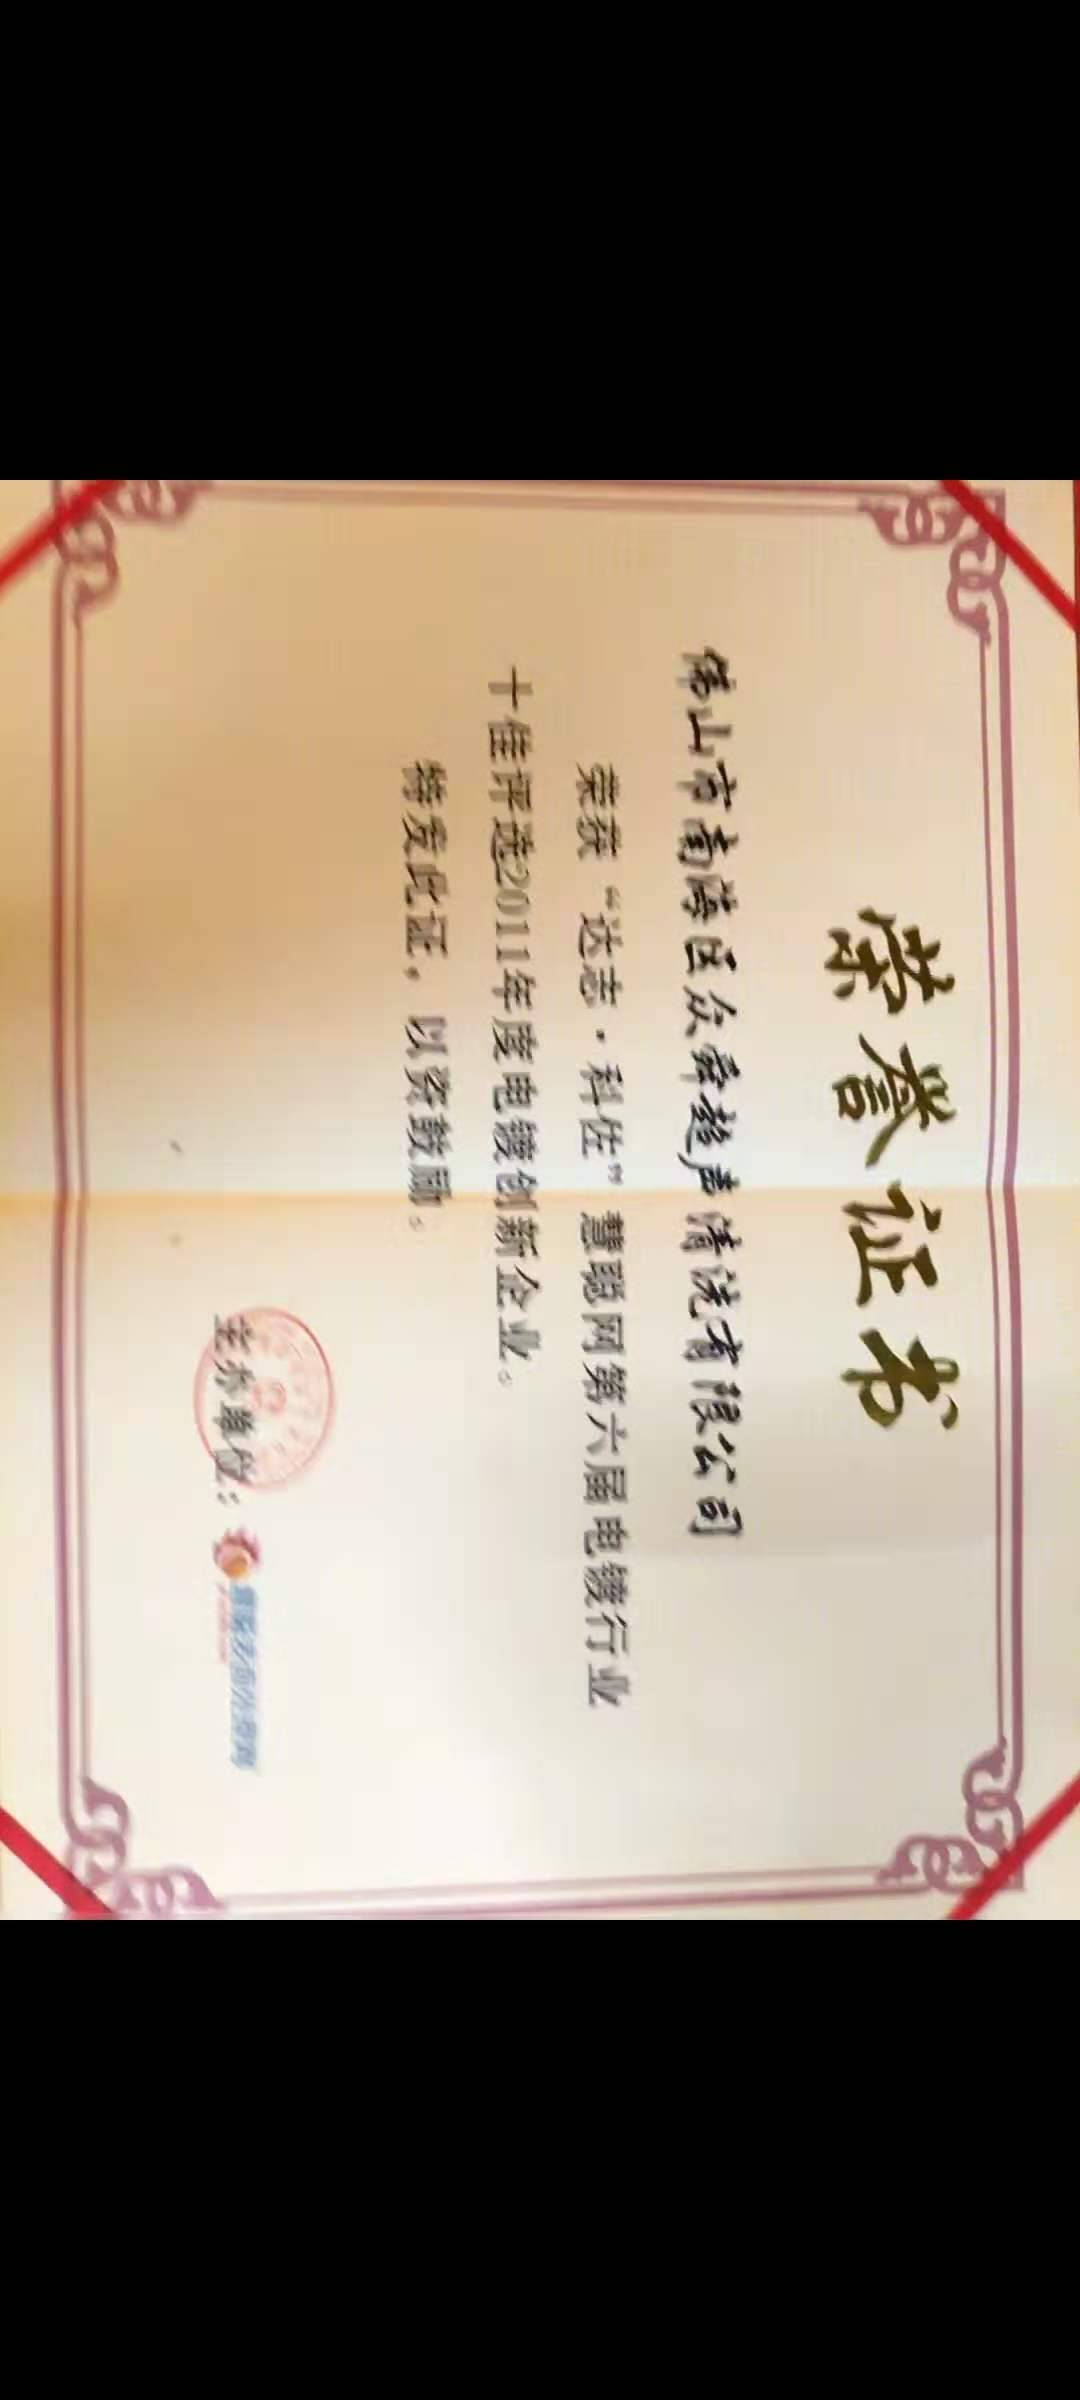 荣誉证书
佛山市南海区众舜超声清洗有限公司
荣获“达志·科佐”慧聪网第六届电镀行业
十佳评选2011年度电镀创新企业。
特发此证，以资鼓励。
主办单位：
慧聪表面处理网